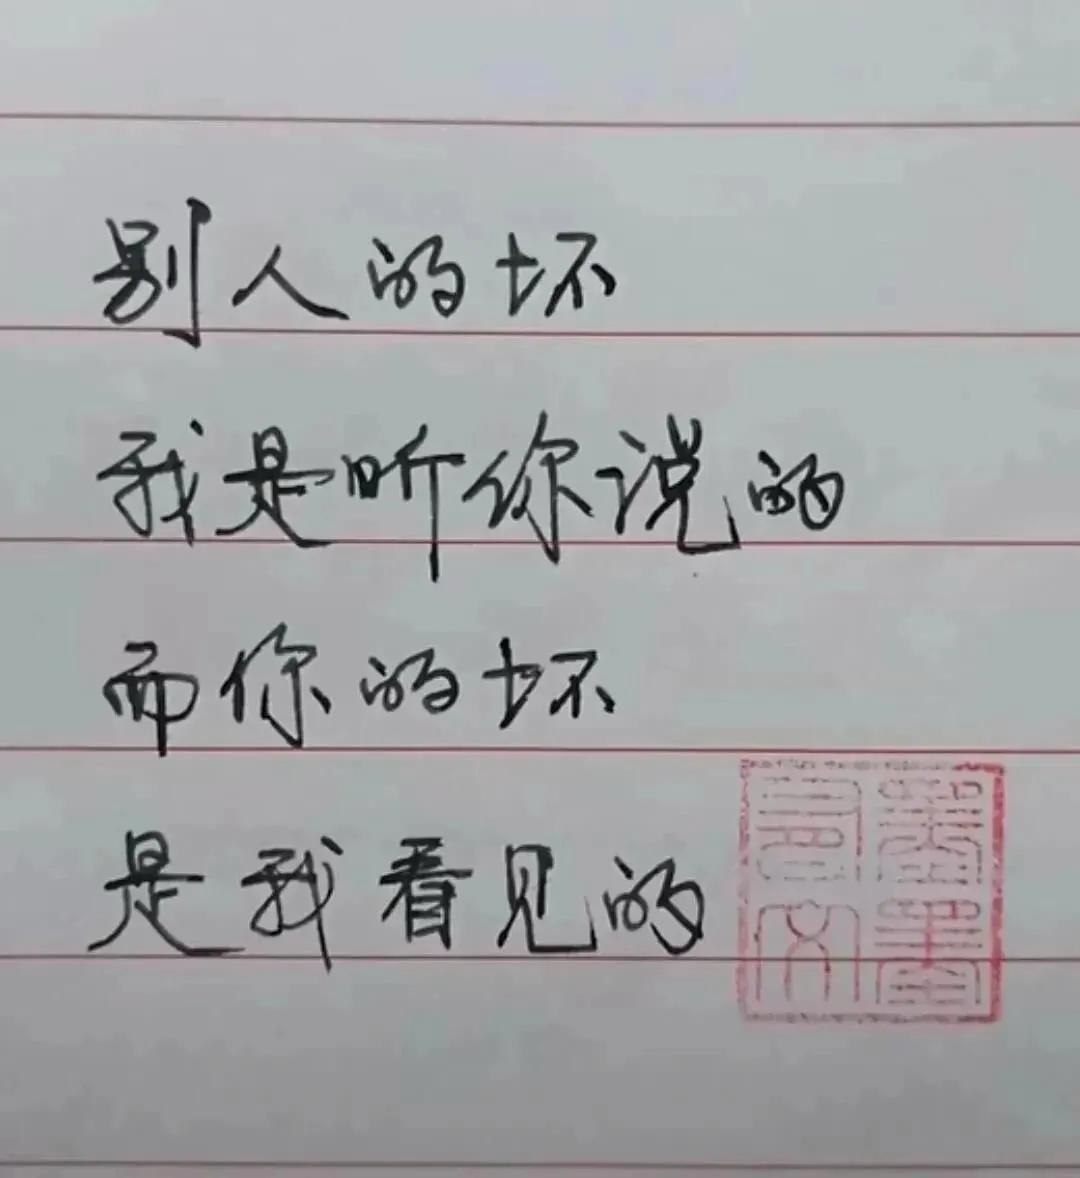 别人的坏
我是听你说的
而你的坏
是我看见的